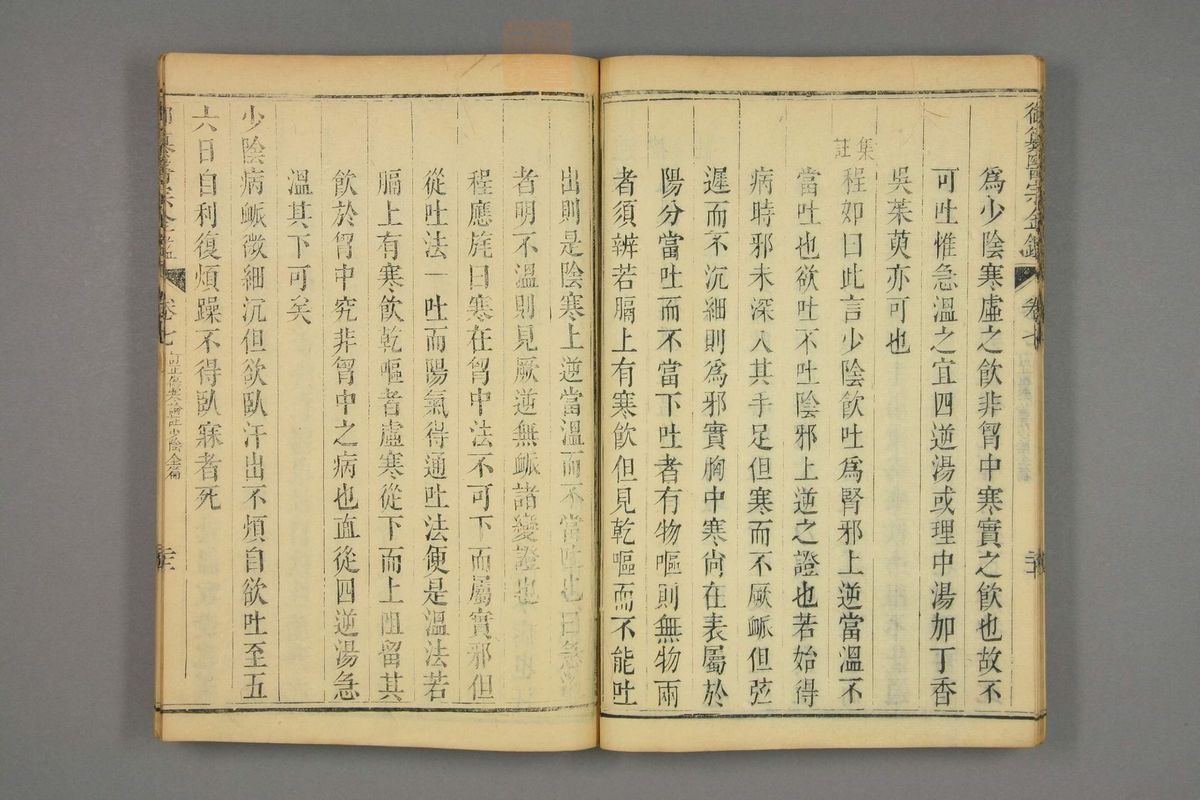 爲少陰寒虛之飲非胷中寒實之飲也故不
可吐惟急溫之宜四逆湯或理中湯加丁香
吳茱萸亦可也
集註
程知曰此言少陰飲吐爲腎邪上逆當溫不
當吐也欲吐不吐陰邪上逆之證也若始得
病時邪未深入其手足但寒而不厥脈但弦
遲而不沉細則爲邪實胸中寒尚在表屬於
陽分當吐而不當下吐者有物嘔則無物兩
者須辨若膈上有寒飲但見乾嘔而不能吐
出則是陰寒上逆當溫而不當吐也曰急溫
者明不溫則見厥逆無脈諸變證也
程應旄曰寒在胷中法不可下而屬實邪但
從吐法一吐而陽氣得通吐法便是溫法若
膈上有寒飲乾嘔者虛寒從下而上阻留其
飲於胷中究非胷中之病也直從四逆湯急
溫其下可矣
少陰病脈微細沉但欲臥汗出不煩自欲吐至五
六日自利復煩躁不得臥寐者死
御纂醫宗金鑑 卷七 訂正傷寒論註少陰全篇